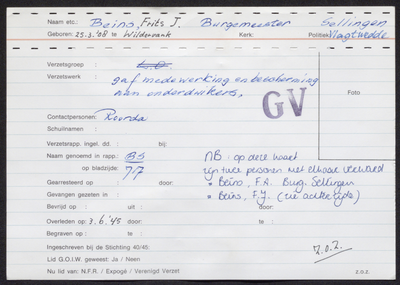 Naam etc.: Beins, Frits J. Burgemeester Sellingen
Geboren: 25-3-'08 te Wildervank Kerk: Politiek: Vlagtwedde
Verzetsgroep : L.O.
Verzetswerk : gaf medewerking en bescherming
aan onderduikers.
GV
Foto
Contactpersonen: Roorda
Schuilnaam :
Verzetsrapp. ingel. dd. : bij:
Naam genoemd in rapp.: BS NB: op deze kaart
op bladzijde: 77 zijn twee personen met elkaar verward
Gearresteerd op : door: = Beins, F.A. Burg. Sellingen
Gevangen gezeten in : = Beins, F.J. (zie achterzijde)
Bevrijd op : uit : door:
Overleden op : 3.6.'45 door: te :
Begraven op : te :
Ingeschreven bij de Stichting 40/45:
Lid G.O.I.W. geweest: Ja / Neen
Nu lid van: N.F.R. / Expogé / Verenigd Verzet
z.o.z.
Z.O.Z.